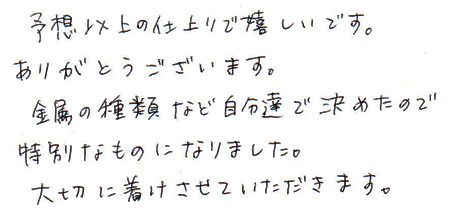 予想以上の仕上りで嬉しいです。
ありがとうございます。
金属の種類など自分達で決めたので
特別なものになりました。
大切に着けさせていただきます。